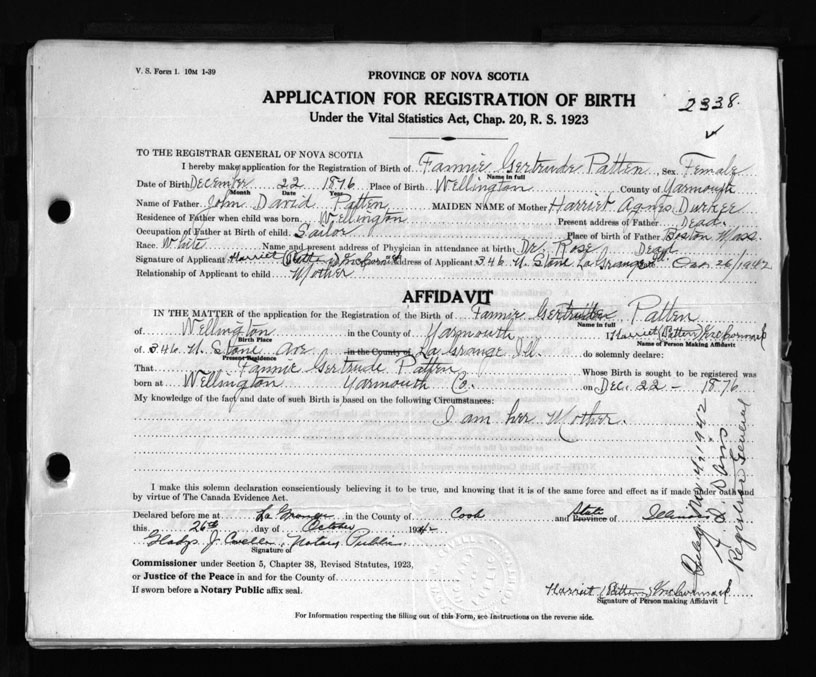 V. S. Form 1. 10M 1-39
PROVINCE OF NOVA SCOTIA
APPLICATION FOR REGISTRATION OF BIRTH
2338.
Under the Vital Statistics Act, Chap. 20, R. S. 1923
TO THE REGISTRAR GENERAL OF NOVA SCOTIA
I hereby make application for the Registration of Birth of Fannie Gertrude Patten, Sex Female
Name in full
Date of Birth December 22 1876 Place of Birth Wellington County of Yarmouth
Month Date Year
Name of Father John David Patten MAIDEN NAME of Mother Harriet Agnes Durkee
Residence of Father when child was born Wellington Present address of Father Dead.
Occupation of Father at Birth of child Sailor Place of birth of Father Boston Mass.
Race White Name and present address of Physician in attendance at birth Dr. Rose Dead
Signature of Applicant Harriet (Patten) Address of Applicant 346 N. Stone La Grange Ill. 26/1942
Relationship of Applicant to child Mother
AFFIDAVIT
IN THE MATTER of the application for the Registration of the Birth of Fannie Gertrude Patten
Name in full
of Wellington in the County of Yarmouth I Harriet (Patten)
Birth Place Name of Person Making Affidavit
of 346 N. Stone Ave in the County of La Grange Ill. do solemnly declare:
Present Residence
That Fannie Gertrude Patten Whose Birth is sought to be registered was
born at Wellington Yarmouth Co. on Dec. 22 - 1876
My knowledge of the fact and date of such Birth is based on the following Circumstances:
I am her Mother.
I make this solemn declaration conscientiously believing it to be true, and knowing that it is of the same force and effect as if made under oath and
by virtue of The Canada Evidence Act.
Declared before me at La Grange in the County of Cook and State Province of
this 26th day of October 1942
Gladys J. Notary Public
Signature of
Commissioner under Section 5, Chapter 38, Revised Statutes, 1923,
or Justice of the Peace in and for the County of
If sworn before a Notary Public affix seal.
Harriet (Patten)
Signature of Person making Affidavit
For Information respecting the filling out of this Form, see Instructions on the reverse side.
Nov 4, 1942
Davis
Registrar General